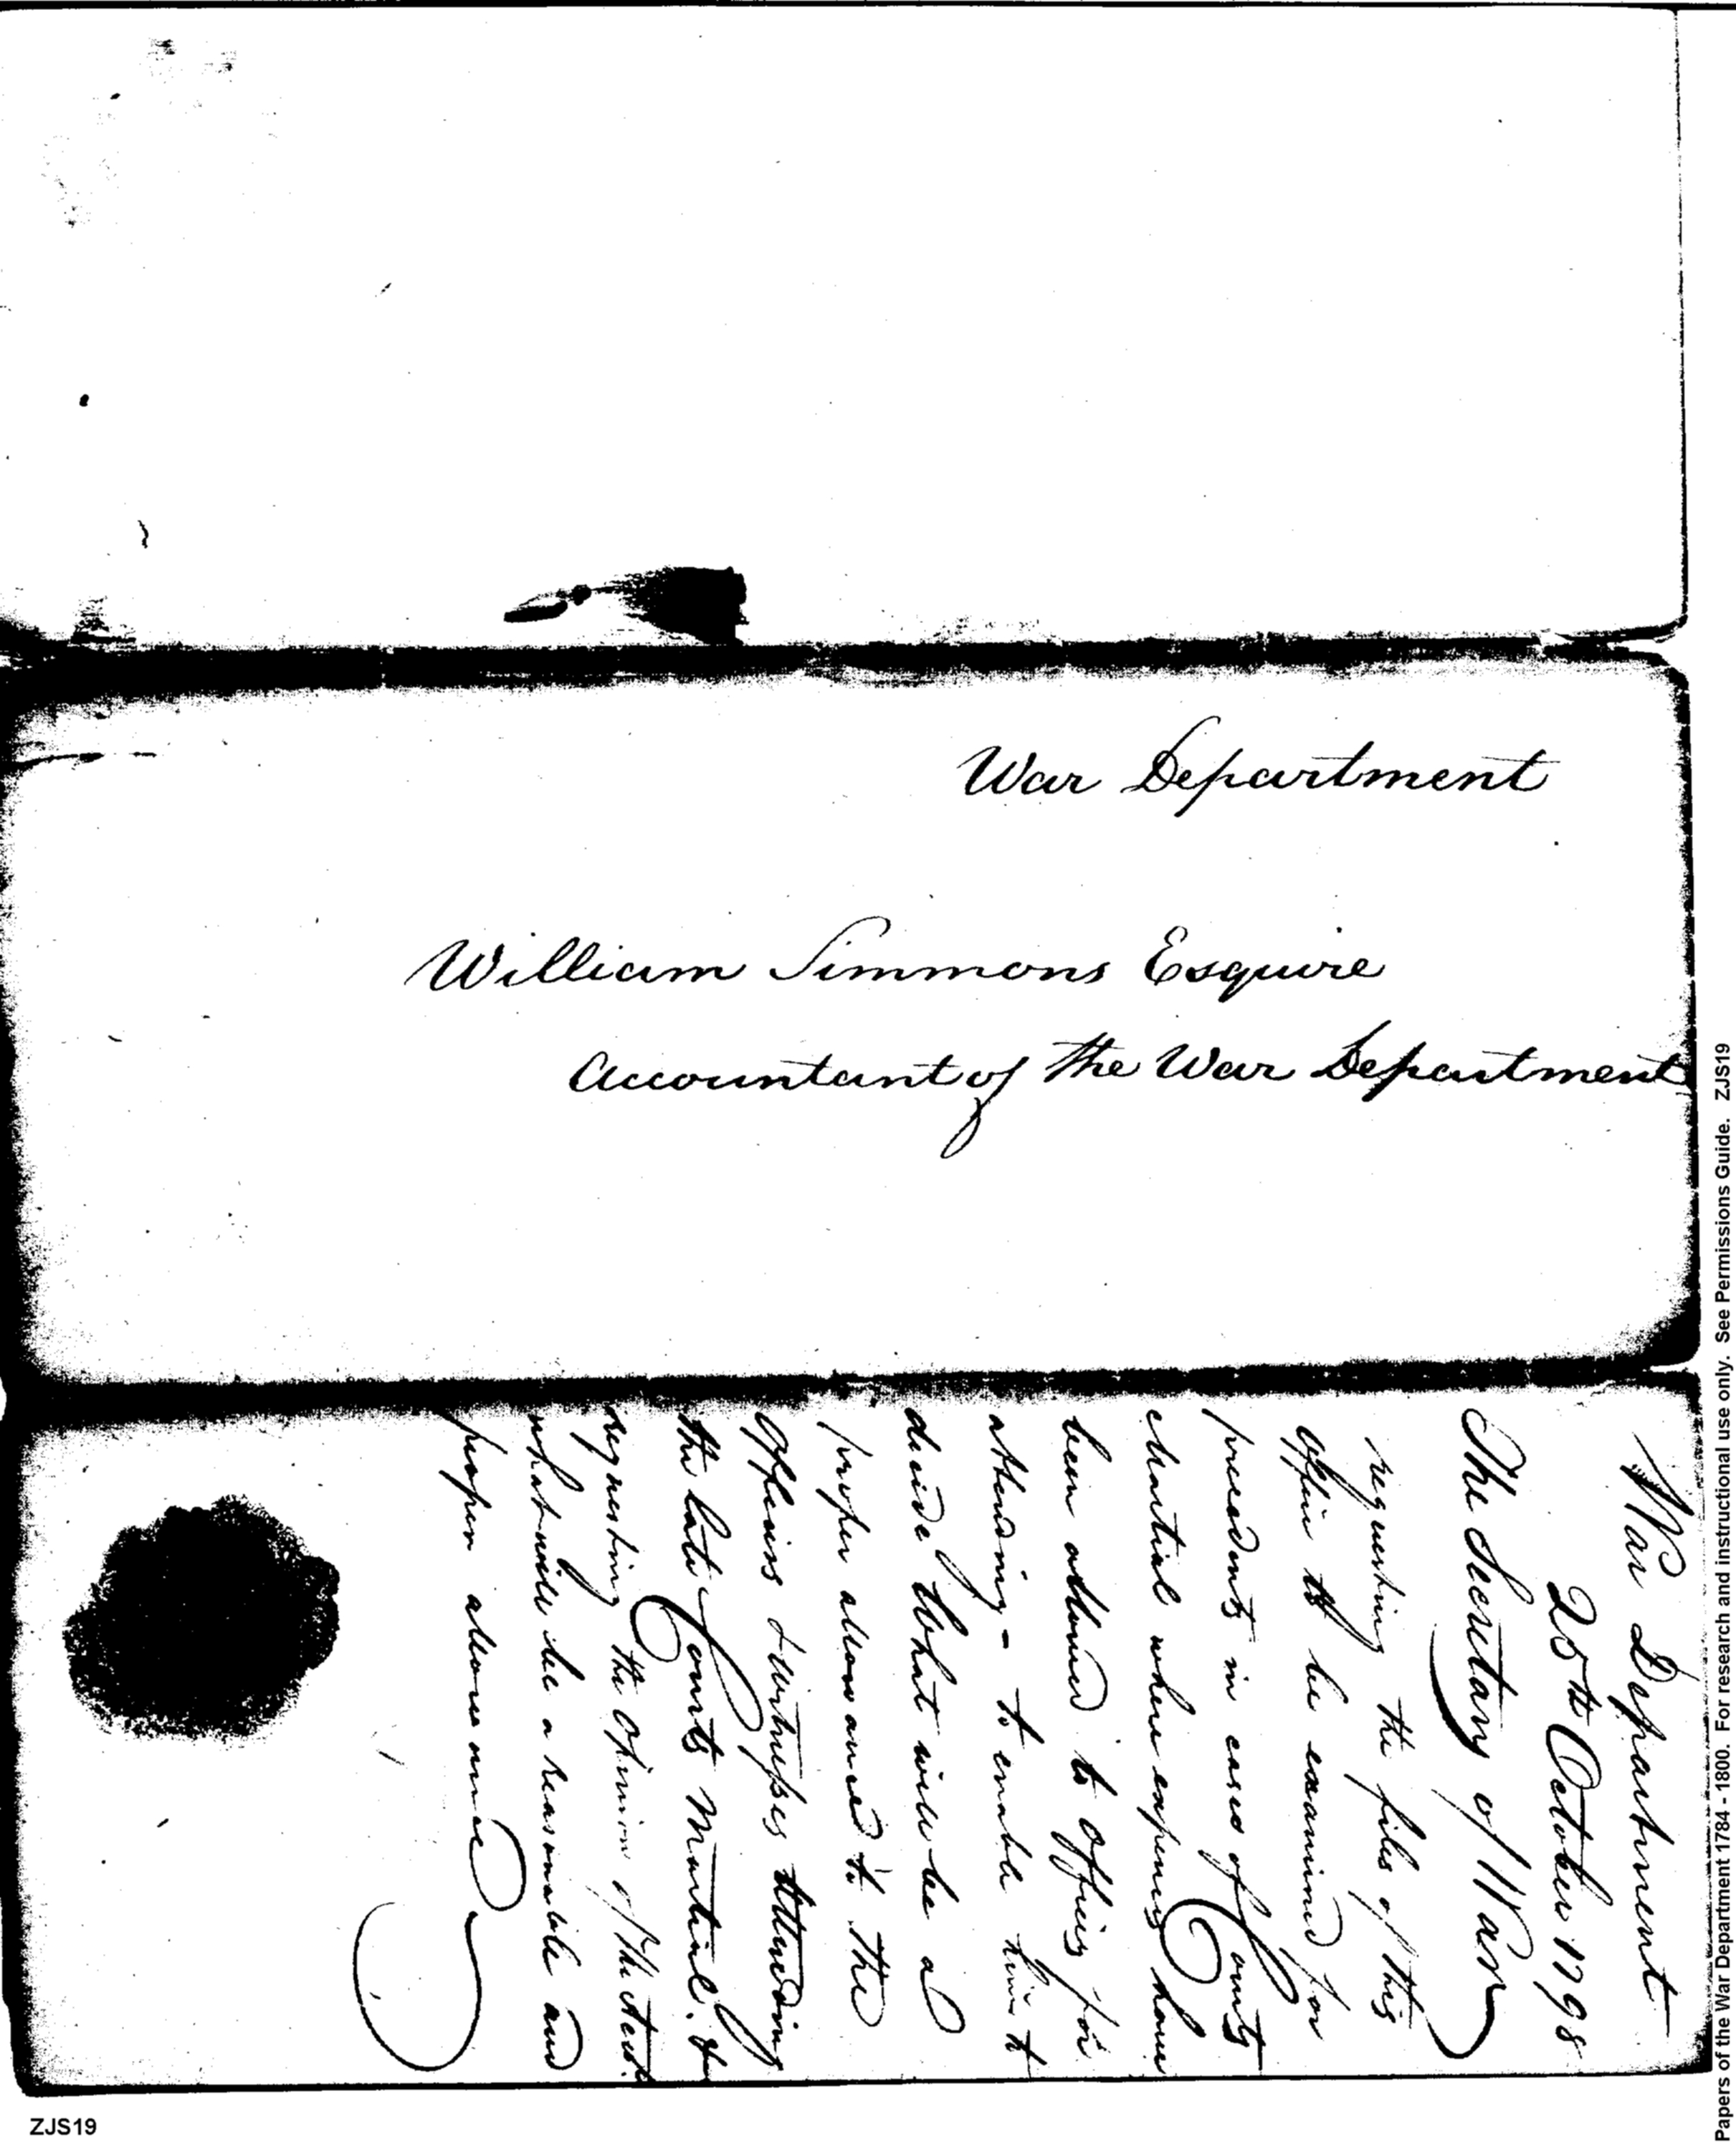 War Department
William Simmons Esquire
Accountant of the War Department
War Department
25th October 1798
The Secretary of War
requesting the files of this
office to be examined for
precedents in cases of Courts
Martial where expenses have
been allowed to officers for
attending - to enable him to
decide what will be a
proper allowance to the
officers & witnesses attending
the late Courts Martial. &
requesting the opinion of the Acct.
what will be a reasonable and
proper allowance
Papers of the War Department 1784 - 1800. For research and instructional use only. See Permissions Guide. ZJS19
ZJS19